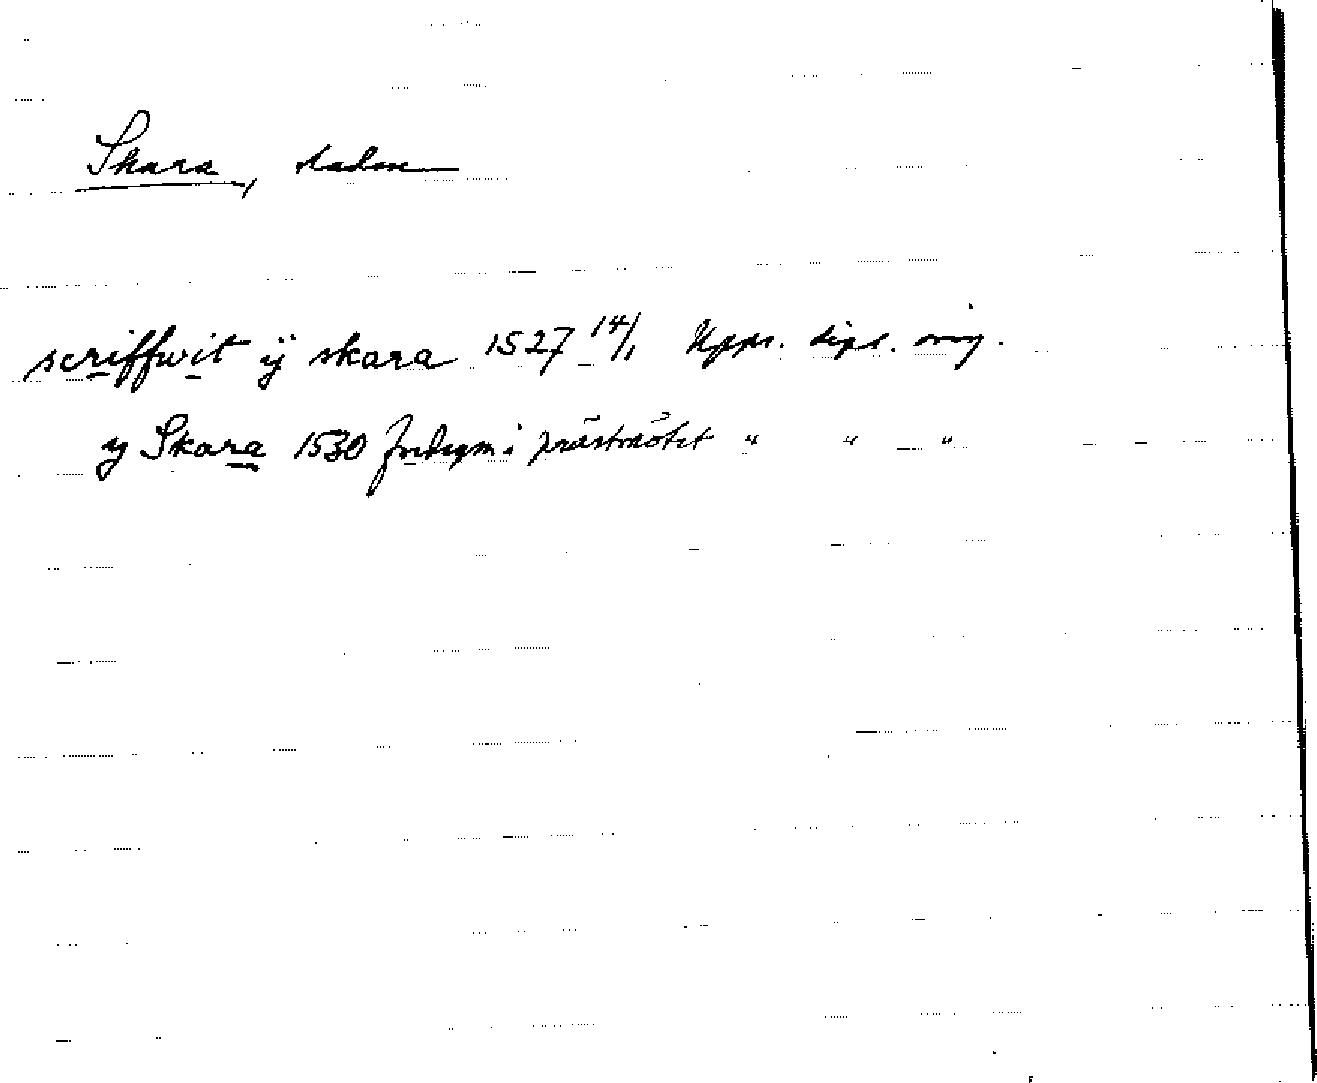 Skara, staden
scriffwit ÿ skara 1527 14/1 Upps. dipl. orig.
y Skara 1530 fredagen i prästmötet " " "